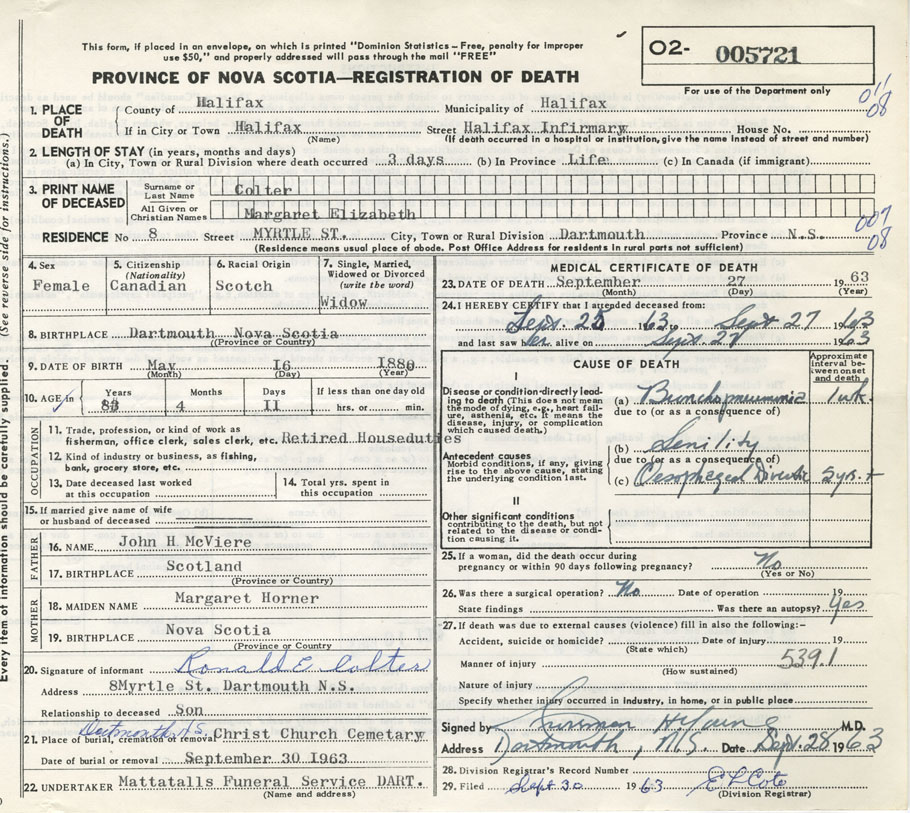 This form, if placed in an envelope, on which is printed "Dominion Statistics – Free, penalty for improper
use $50," and properly addressed will pass through the mail "FREE"
PROVINCE OF NOVA SCOTIA—REGISTRATION OF DEATH
O2- 005721
For use of the Department only
01
08
1. PLACE OF DEATH
County of Halifax Municipality of Halifax
If in City or Town Halifax Street Halifax Infirmary House No.
(Name) (If death occurred in a hospital or institution, give the name instead of street and number)
2. LENGTH OF STAY (in years, months and days)
(a) In City, Town or Rural Division where death occurred 3 days (b) In Province Life (c) In Canada (if immigrant)
3. PRINT NAME OF DECEASED
Surname or Last Name Colter
All Given or Christian Names Margaret Elizabeth
007
08
RESIDENCE No 8 Street MYRTLE ST. City, Town or Rural Division Dartmouth Province N.S.
(Residence means usual place of abode. Post Office Address for residents in rural parts not sufficient)
4. Sex Female
5. Citizenship (Nationality) Canadian
6. Racial Origin Scotch
7. Single, Married, Widowed or Divorced (write the word) Widow
8. BIRTHPLACE Dartmouth Nova Scotia
(Province or Country)
9. DATE OF BIRTH May 16 1880
(Month) (Day) (Year)
10. AGE in Years 83 Months 4 Days 11 If less than one day old hrs. or min.
OCCUPATION
11. Trade, profession, or kind of work as
fisherman, office clerk, sales clerk, etc. Retired Houseduties
12. Kind of industry or business, as fishing,
bank, grocery store, etc.
13. Date deceased last worked at this occupation
14. Total yrs. spent in this occupation
15. If married give name of wife
or husband of deceased
FATHER
16. NAME John H McViere
17. BIRTHPLACE Scotland
(Province or Country)
MOTHER
18. MAIDEN NAME Margaret Horner
19. BIRTHPLACE Nova Scotia
(Province or Country
20. Signature of informant Ronald E Colter
Address 8Myrtle St. Dartmouth N.S.
Relationship to deceased Son
Dartmouth, N.S.
21. Place of burial, cremation or removal Christ Church Cemetary
Date of burial or removal September 30 1963
22. UNDERTAKER Mattatalls Funeral Service DART.
(Name and address)
MEDICAL CERTIFICATE OF DEATH
23. DATE OF DEATH September 27 1963
(Month) (Day) (Year)
24. I HEREBY CERTIFY that I attended deceased from:
Sept. 25 1963 to Sept 27 1963
and last saw her alive on Sept. 27 1963
CAUSE OF DEATH
Approximate interval between onset and death
I
Disease or condition directly leading to death (This does not mean the mode of dying, e.g., heart failure, asthenia, etc. It means the disease, injury, or complication which caused death.)
(a) Bronchopneumonia 1 wk.
due to (or as a consequence of)
Antecedent causes
Morbid conditions, if any, giving rise to the above cause, stating the underlying condition last.
(b) Senility
due to (or as a consequence of)
(c) Oesophageal 5 yrs. +
II
Other significant conditions
contributing to the death, but not related to the disease or condition causing it.
25. If a woman, did the death occur during
pregnancy or within 90 days following pregnancy? No
(Yes or No)
26. Was there a surgical operation? No Date of operation 19
State findings Was there an autopsy? Yes
27. If death was due to external causes (violence) fill in also the following:–
Accident, suicide or homicide? Date of injury 19
(State which)
Manner of injury 539.1
(How sustained)
Nature of injury
Specify whether injury occurred in Industry, in home, or in public place
Signed by M.D.
Address Dartmouth, N.S. Date Sept. 28 1963
28. Division Registrar's Record Number
29. Filed Sept 30 1963
(Division Registrar)
Every item of information should be carefully supplied. (See reverse side for instructions.)